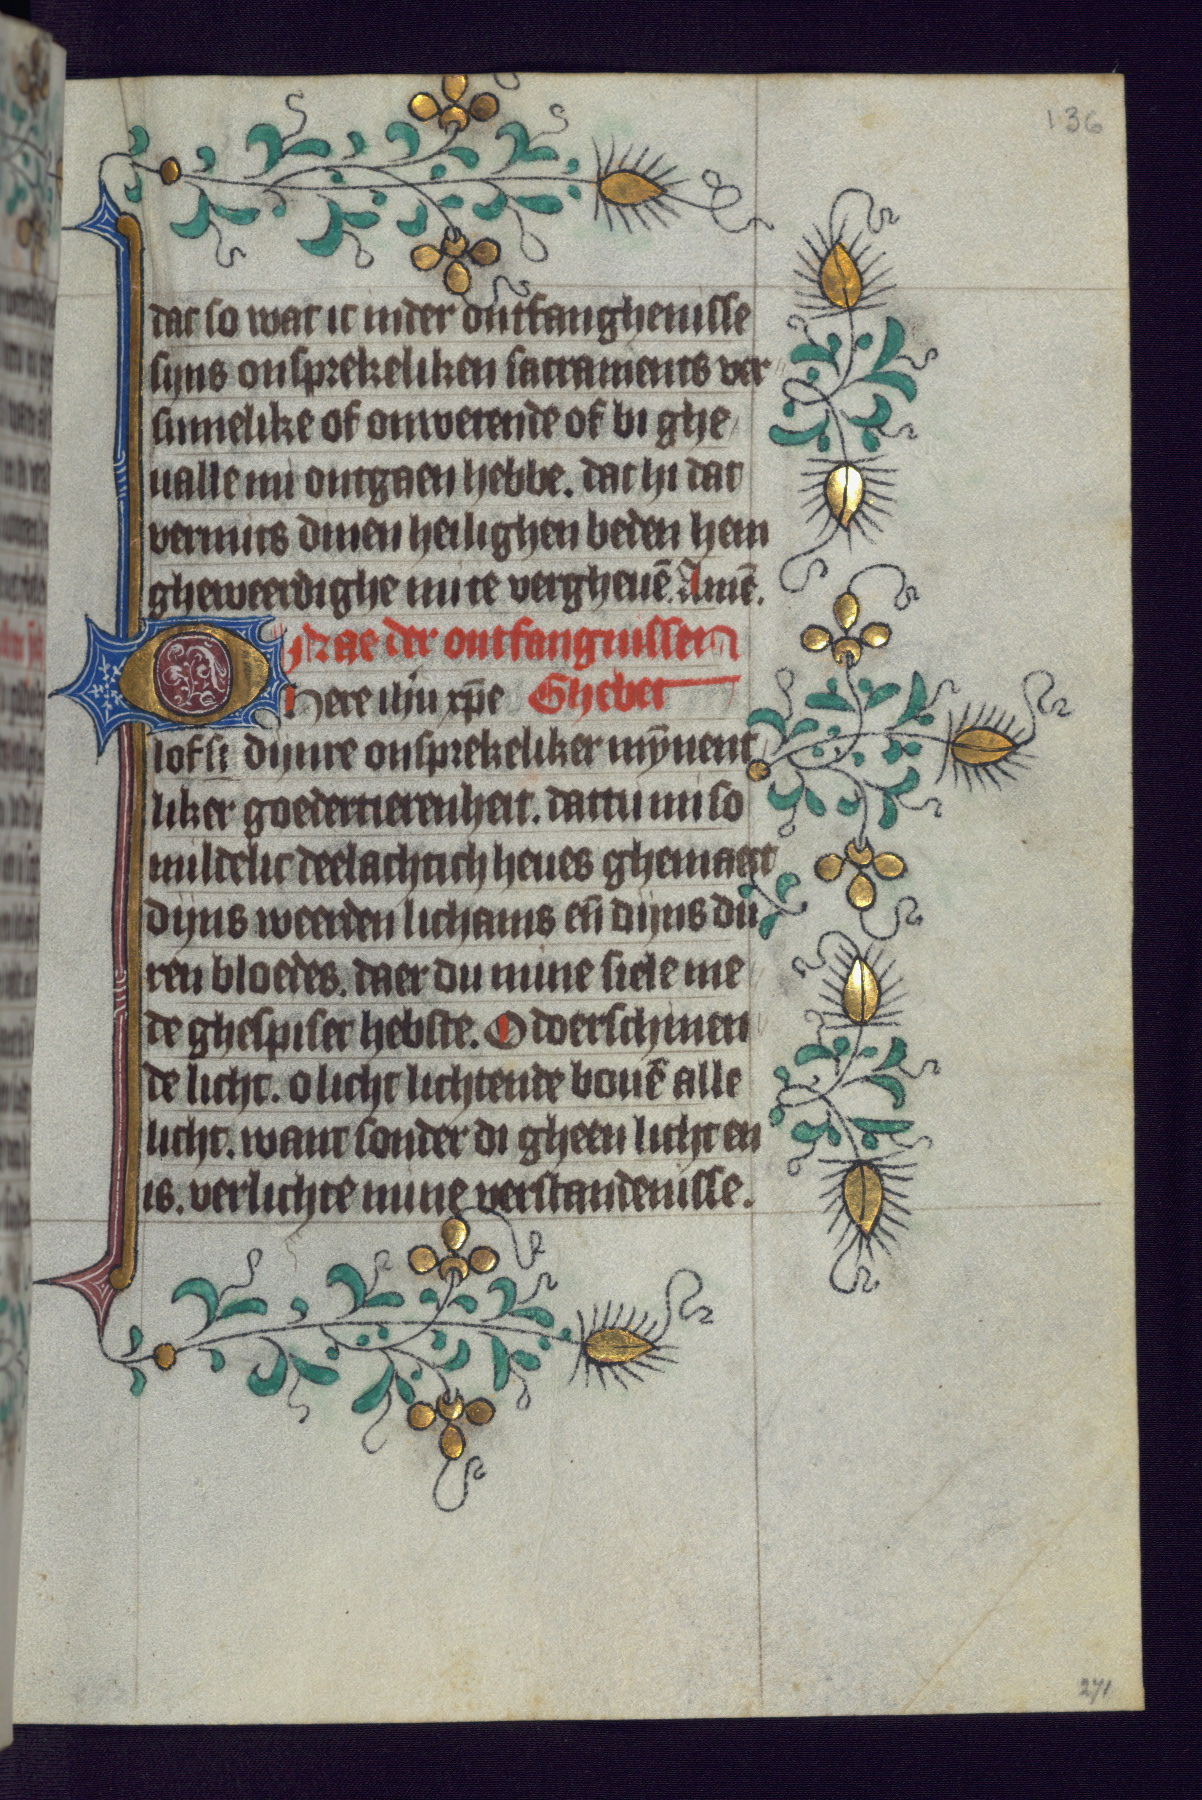 136
dat so wat ic inder ontfanghenisse
sijns onsprekeliken sacraments ver
sumelike of onwetende of bi ghe
ualle nu ontgaen hebbe. dat hi dat
vermits dinen heilighen beden hem
gheweerdighe mi te vergheuē. Amē.
Nae der ontfangnissen
O Here ihū xp̄e Ghebet
lof si dijnre onsprekeliker mȳnent
liker goedertierenheit. dattu mi so
mildelic deelachtich heues ghemaect
dijns weerden lichams eñ dijns du
ren bloedes. daer du mine siele me
de ghespiset hebste. O doerschinen
de licht. o licht lichtende bouē alle
licht. want sonder di gheen licht en
is. verlichte mine verstandenisse.
271